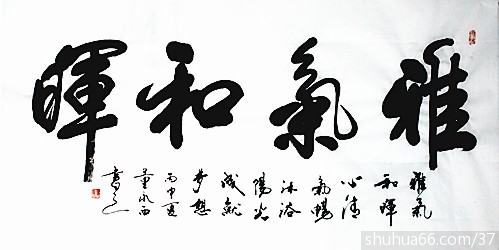 雅氣和暉
雅氣
和暉
心清
氣暢
沐浴
陽光
成就
夢想
丙申夏
董永西
書之
shuhua66.com/37